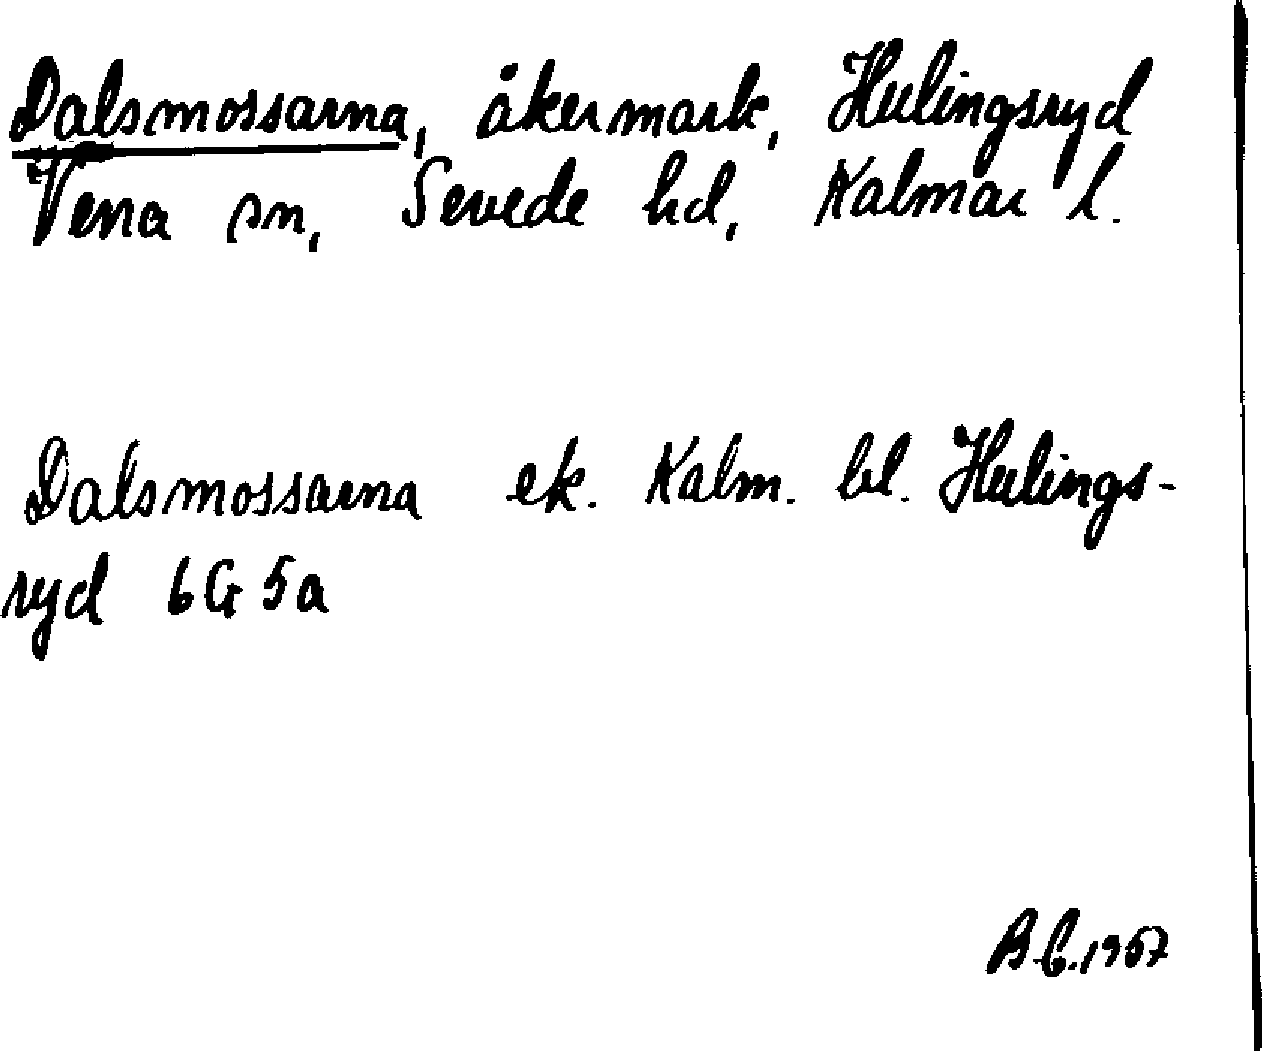 Dalsmossarna, åkermark, Hulingsryd
Vena sn, Sevede hd, Kalmar l.
Dalsmossarna ek. Kalm. bl. Hulings-
ryd 6G 5a